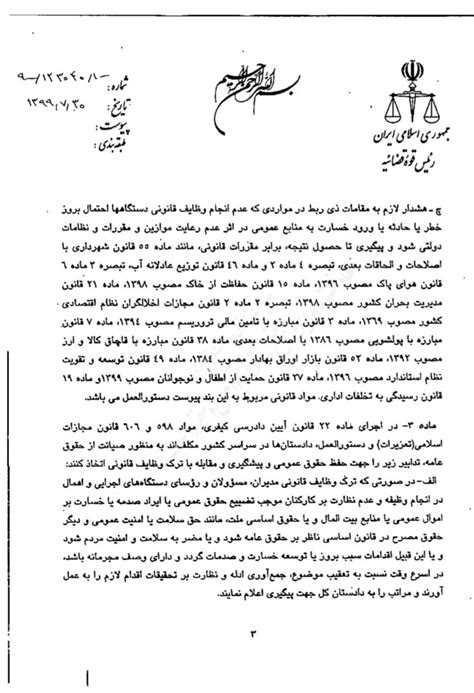 بسم الله الرحمن الرحیم
جمهوری اسلامی ایران
رئیس قوه قضائیه
شماره: ۹۰۰۰/۱۲۳۰۴۰/۱۰۰
تاریخ: ۱۳۹۹/۷/۳۰
پیوست:
طبقه بندی:
چ ـ هشدار لازم به مقامات ذی ربط در مواردی که عدم انجام وظایف قانونی دستگاهها احتمال بروز
خطر یا حادثه یا ورود خسارت به منابع عمومی در اثر عدم رعایت موازین و مقررات و نظامات
دولتی شود و پیگیری تا حصول نتیجه، برابر مقررات قانونی، مانند ماده ۵۵ قانون شهرداری با
اصلاحات و الحاقات بعدی، تبصره ۴ ماده ۲ و ماده ۴۶ قانون توزیع عادلانه آب، تبصره ۳ ماده ۶
قانون هوای پاک مصوب ۱۳۹۶، ماده ۱۵ قانون حفاظت از خاک مصوب ۱۳۹۸، ماده ۲۱ قانون
مدیریت بحران کشور مصوب ۱۳۹۸، تبصره ۲ ماده ۲ قانون مجازات اخلالگران نظام اقتصادی
کشور مصوب ۱۳۶۹، ماده ۳ قانون مبارزه با تامین مالی تروریسم مصوب ۱۳۹۴، ماده ۷ قانون
مبارزه با پولشویی مصوب ۱۳۸۶ با اصلاحات بعدی، ماده ۳۸ قانون مبارزه با قاچاق کالا و ارز
مصوب ۱۳۹۲، ماده ۵۲ قانون بازار اوراق بهادار مصوب ۱۳۸۴، ماده ۴۹ قانون توسعه و تقویت
نظام استاندارد مصوب ۱۳۹۶، ماده ۳۷ قانون حمایت از اطفال و نوجوانان مصوب ۱۳۹۹و ماده ۱۹
قانون رسیدگی به تخلفات اداری. مواد قانونی مربوط به این بند پیوست دستورالعمل می باشد.
ماده ۳- در اجرای ماده ۲۲ قانون آیین دادرسی کیفری، مواد ۵۹۸ و ۶۰۶ قانون مجازات
اسلامی(تعزیرات) و دستورالعمل، دادستان‌ها در سراسر کشور مکلف‌اند به منظور صیانت از حقوق
عامه، تدابیر زیر را جهت حفظ حقوق عمومی و پیشگیری و مقابله با ترک وظایف قانونی اتخاذ کنند:
الف- در صورتی که ترک وظایف قانونی مدیران، مسؤولان و رؤسای دستگاه‌های اجرایی و اهمال
در انجام وظیفه و عدم نظارت بر کارکنان موجب تضییع حقوق عمومی یا ایراد صدمه یا خسارت بر
اموال عمومی یا منابع بیت المال و یا حقوق اساسی ملت، مانند حق سلامت یا امنیت عمومی و دیگر
حقوق مصرح در قانون اساسی ناظر بر حقوق عامه شود و یا مضر به سلامت و امنیت مردم شود
و یا این قبیل اقدامات سبب بروز یا توسعه خسارت و صدمات گردد و دارای وصف مجرمانه باشد،
در اسرع وقت نسبت به تعقیب موضوع، جمع‌آوری ادله و نظارت بر تحقیقات اقدام لازم را به عمل
آورند و مراتب را به دادستان کل جهت پیگیری اعلام نمایند.
۳